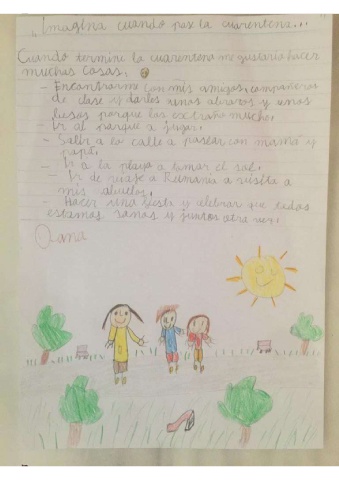 Imagina cuando pase la cuarentena...
Cuando termine la cuarentena me gustaría hacer
muchas cosas.
- Encontrarme con mis amigos, compañeros
de clase y darles unos abrazos y unos
besos porque los extraño mucho.
- Ir al parque a jugar.
- Salir a la calle a pasear con mamá y
papá.
- Ir a la playa a tomar el sol.
- Ir de viaje a Rumanía a visita a
mis abuelos.
- Hacer una fiesta y celebrar que todos
estamos sanos y juntos otra vez.